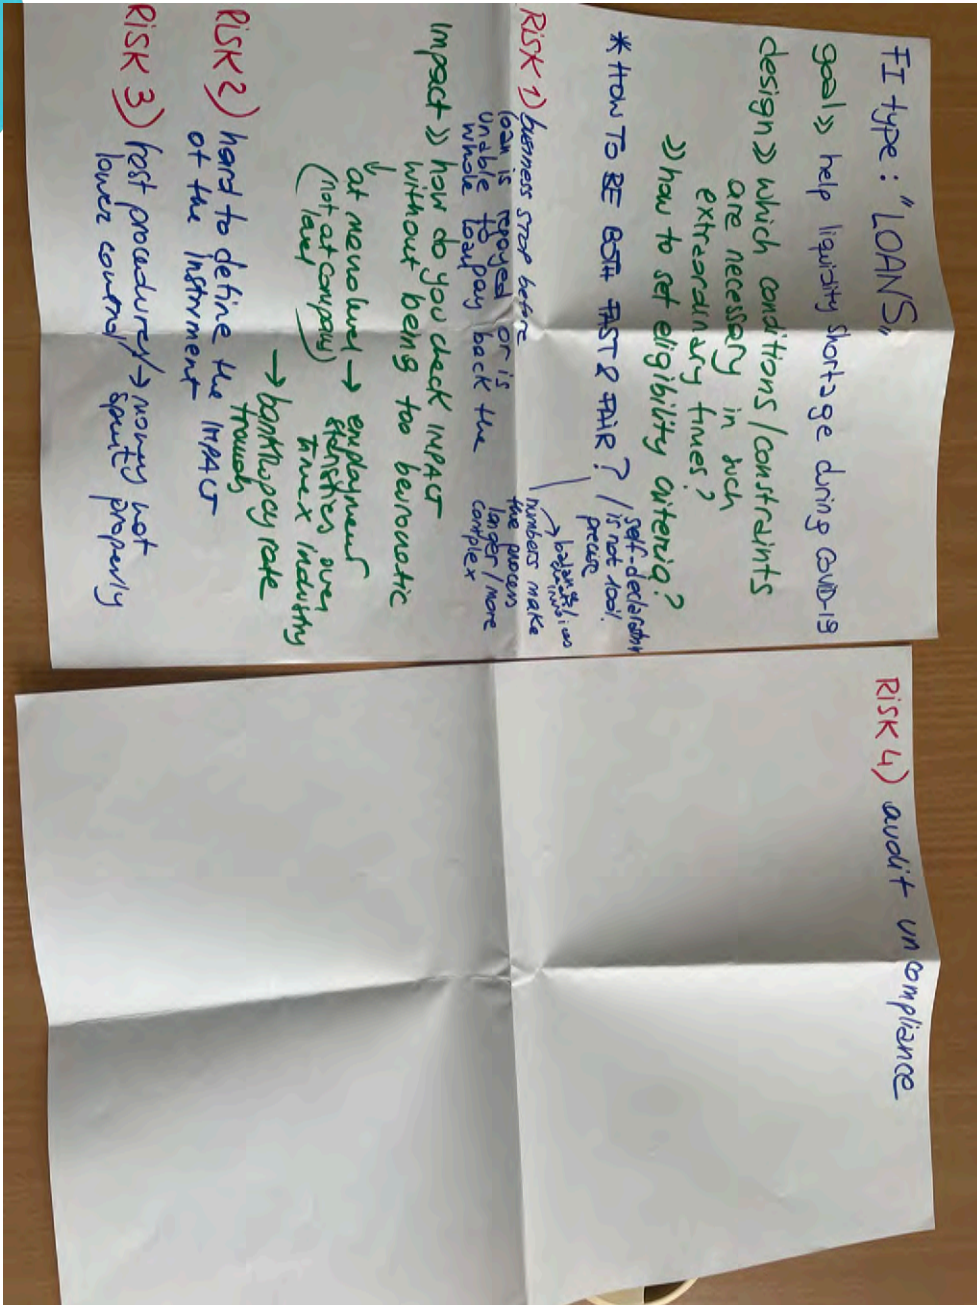 FI type: "LOANS"
goal >> help liquidity shortage during COVID-19
design >> which conditions/constraints
are necessary in such
extraordinary times?
>> how to set eligibility criteria?
* HOW TO BE BOTH FAST & FAIR? / self-declaration
is not 100%
precise
→ balance /
numbers make
the process
longer/more
complex
RISK 1) business stop before
loan is repayed or is
unable to pay back the
whole loan
Impact >> how do you check IMPACT
without being too
↓
at macrolevel → employment
(not at company
level)
statistics over
time x industry
→ bankrupcy rate
trends
RISK 2) hard to define the IMPACT
of the instrument
RISK 3) fast procedures/
lower control / → money not
spent properly
RISK 4) audit uncompliance